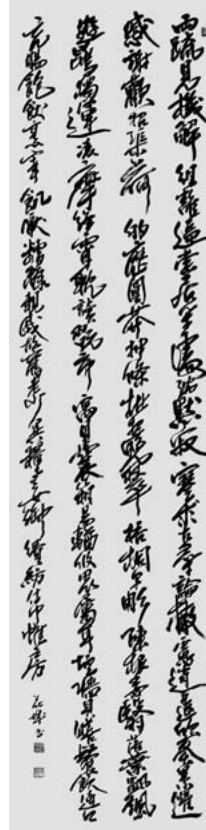 兩疏見機解組誰逼索居閑處沉默寂寥求古尋論散慮逍遙欣奏累遣
感謝歡招渠荷的歷園莽抽條枇杷晚翠梧桐早凋陳根委翳落葉飄颻
遊鵾獨運凌摩絳霄耽讀翫市寓目囊箱易輶攸畏屬耳垣牆具膳餐飯適口
充腸飽飫烹宰飢厭糟糠親戚故舊老少異糧妾御績紡侍巾帷房